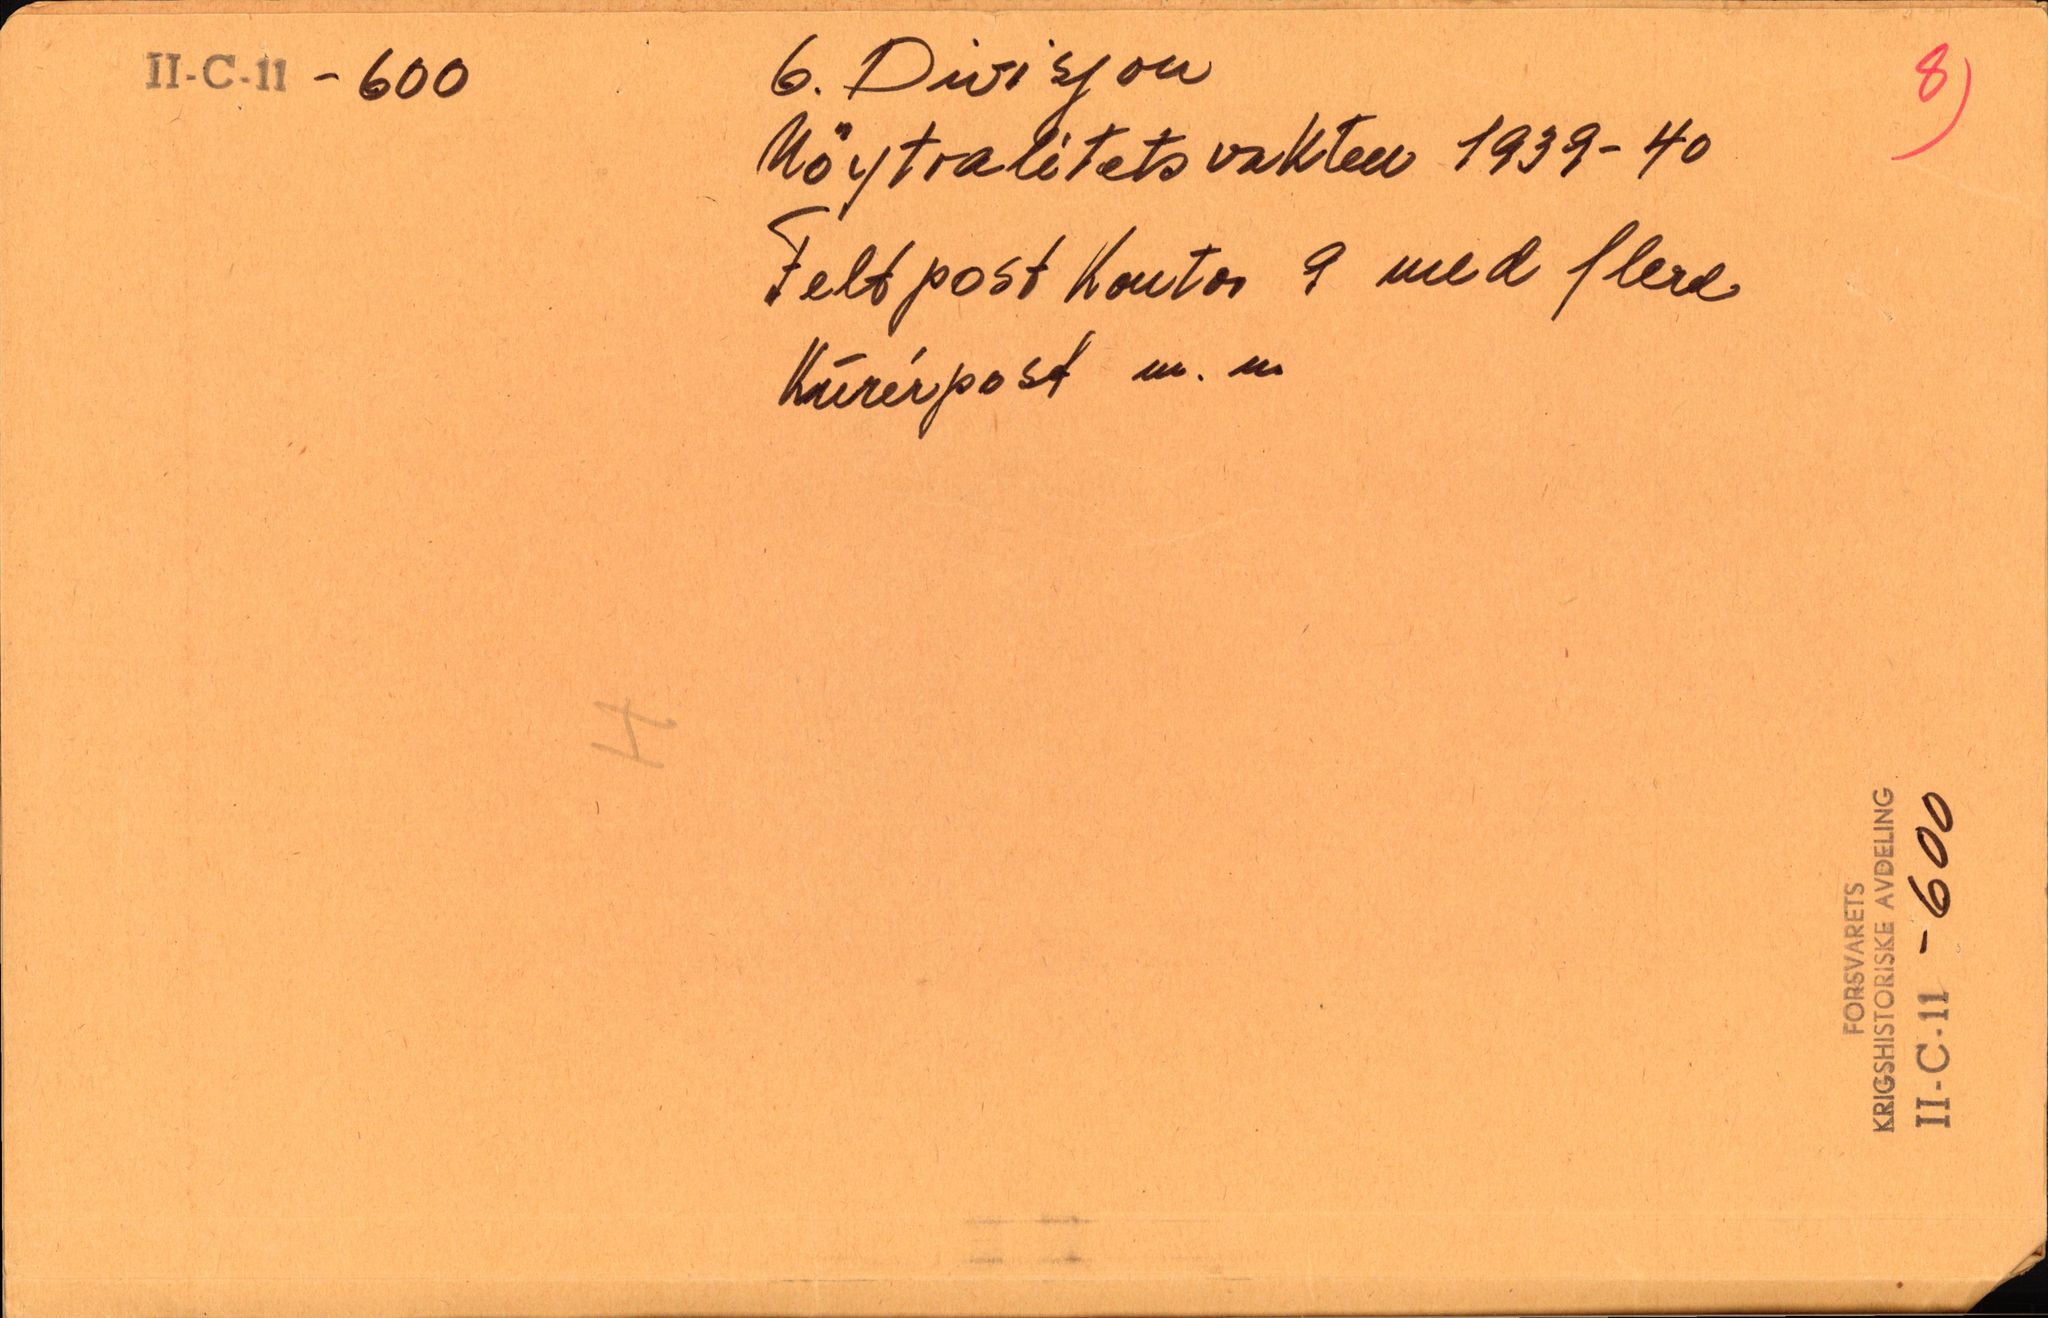 II-C-11 - 600
6. Divisjon
Nöytralitetsvakten 1939-40
Feltpostkontor 9 med flere
Kurérpost m.m
8)
H
FORSVARETS
KRIGSHISTORISKE AVDELING
II-C-11 - 600